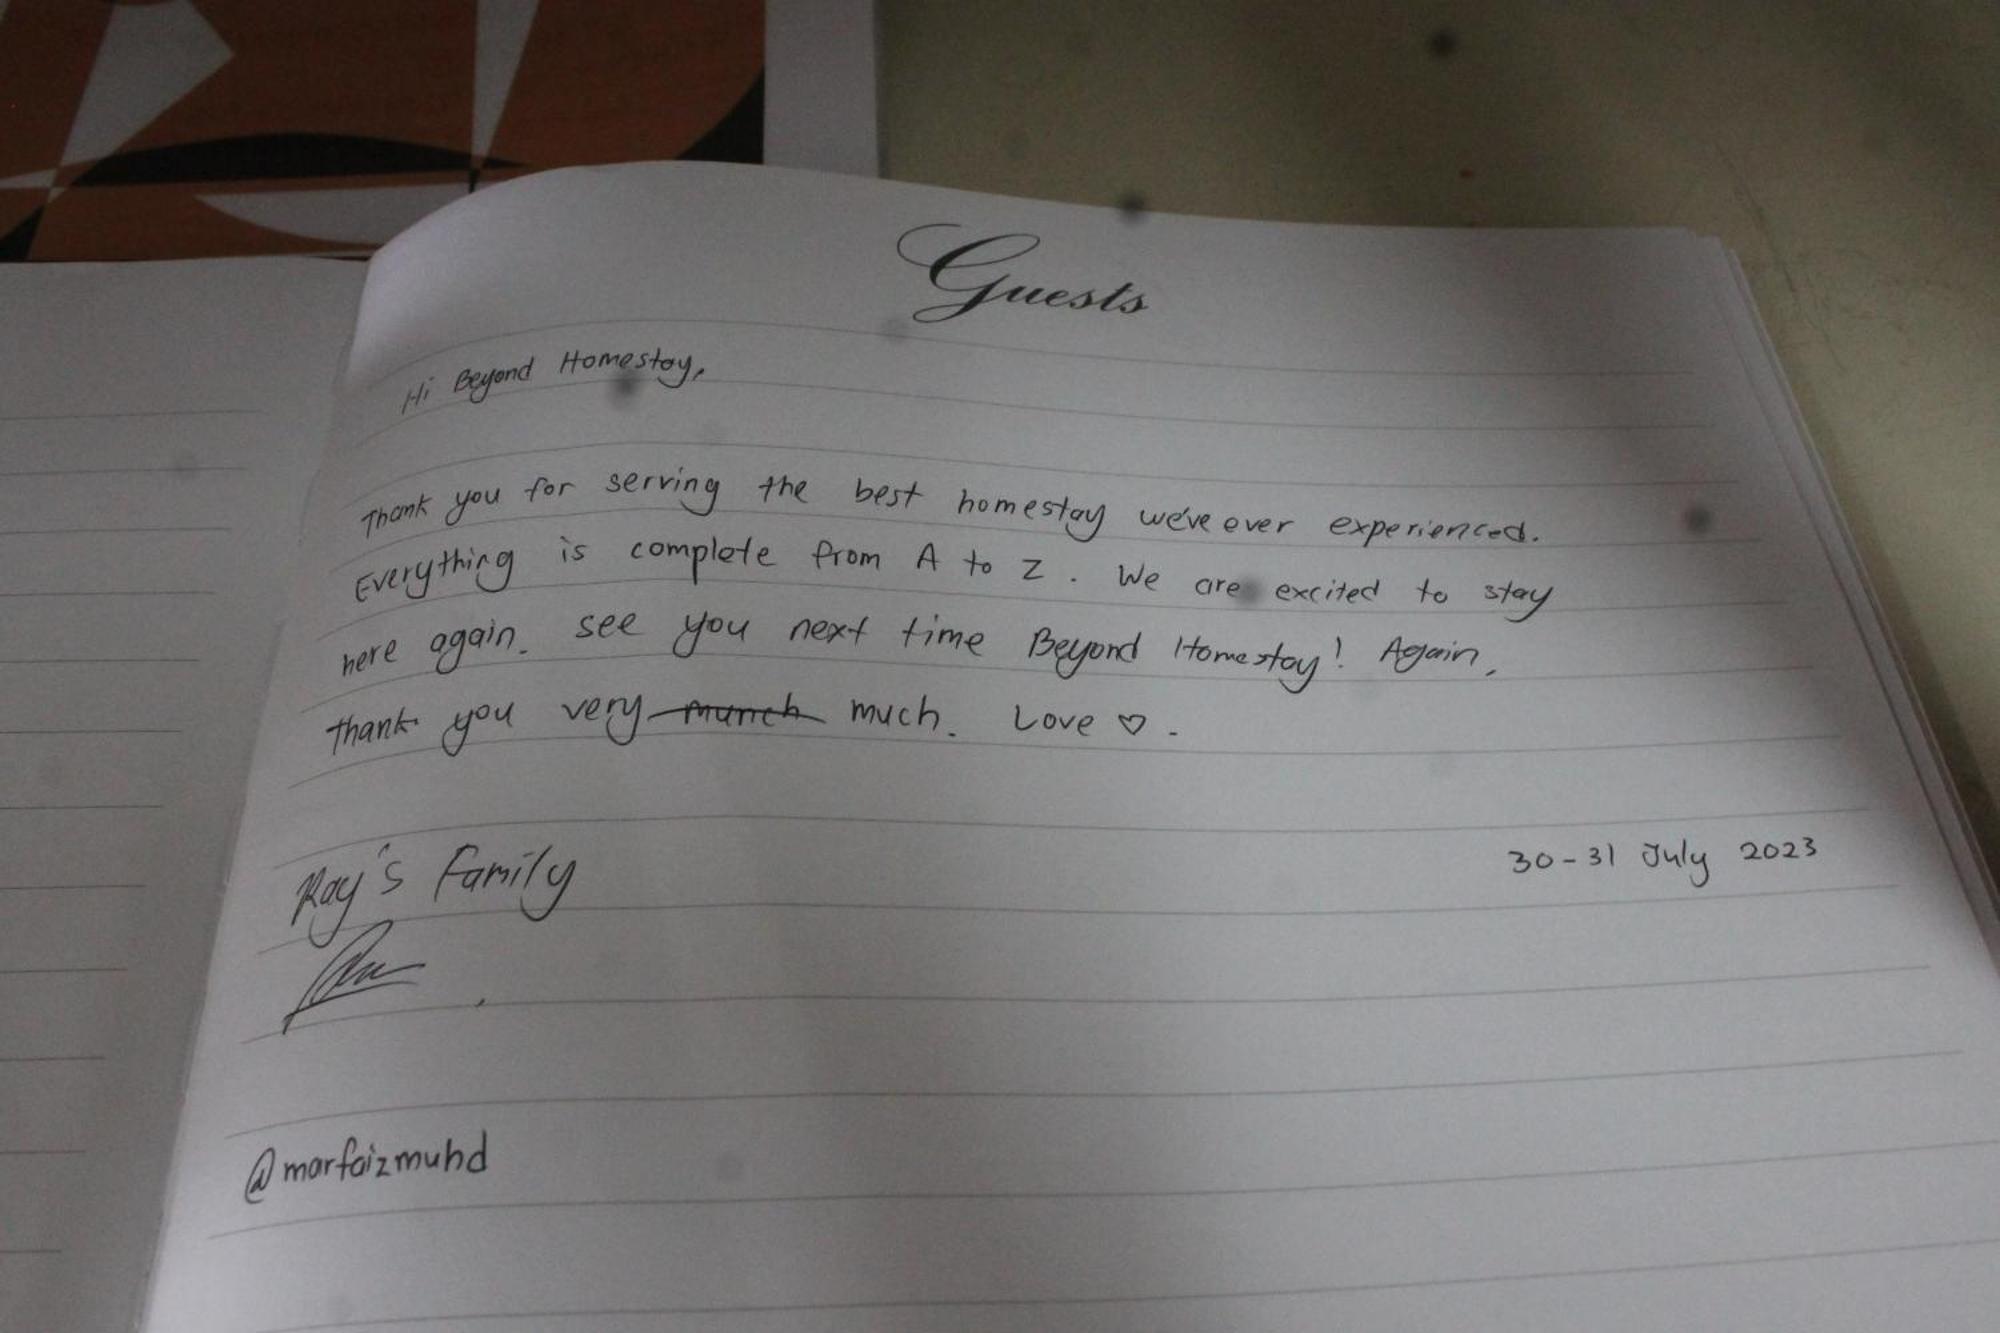 Guests
Hi Beyond Homestay,
Thank you for serving the best homestay we've ever experienced.
Everything is complete from A to Z. We are excited to stay
here again. See you next time Beyond Homestay! Again,
thank you very munch much. Love ♡.
Ray's Family
30-31 July 2023
@marfaizmuhd